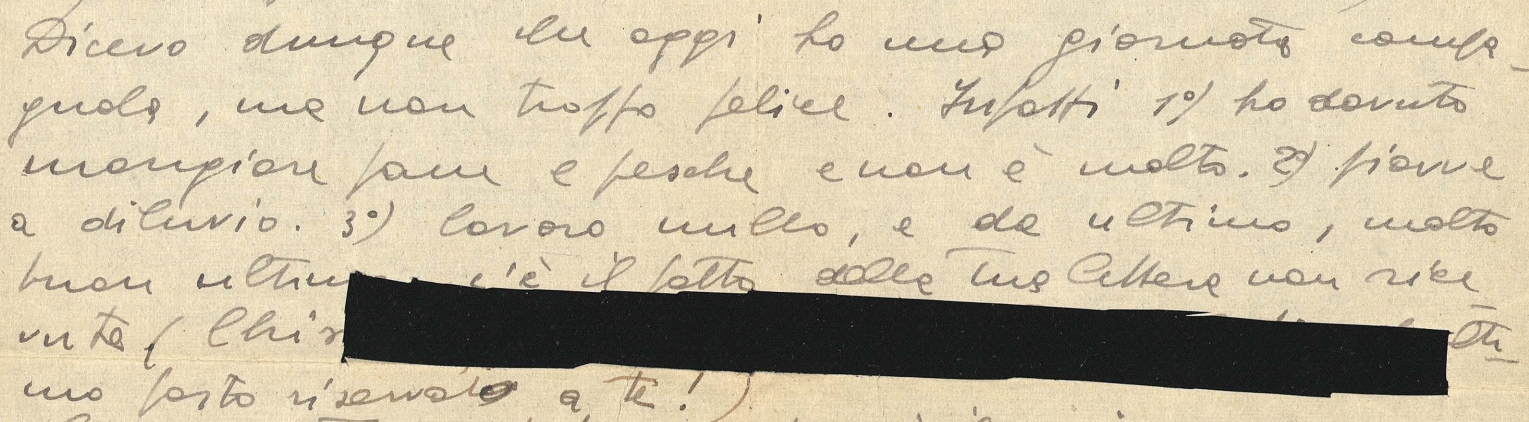 Dicevo dunque che oggi ho una giornata campa-
gnola, ma non troppo felice. Infatti 1°) ho dovuto
mangiare pane e pesche e non è molto. 2°) piove
a diluvio. 3°) lavoro nullo, e da ultimo, molto
buon c'è il fatto della tua lettera non rice-
vuta (
mo posto riservato a te! )